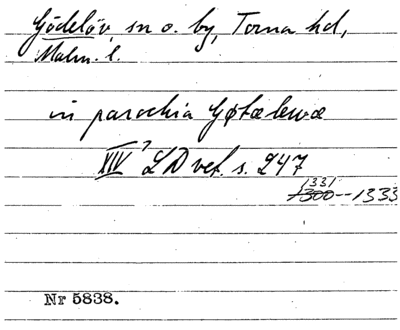 Gödelöv, sn o. by, Torna hd,
Malm. l.
in parochia Gøtæleuæ
XIV? LD vet. s. 247
1331
1300--1333
Nr 5838.